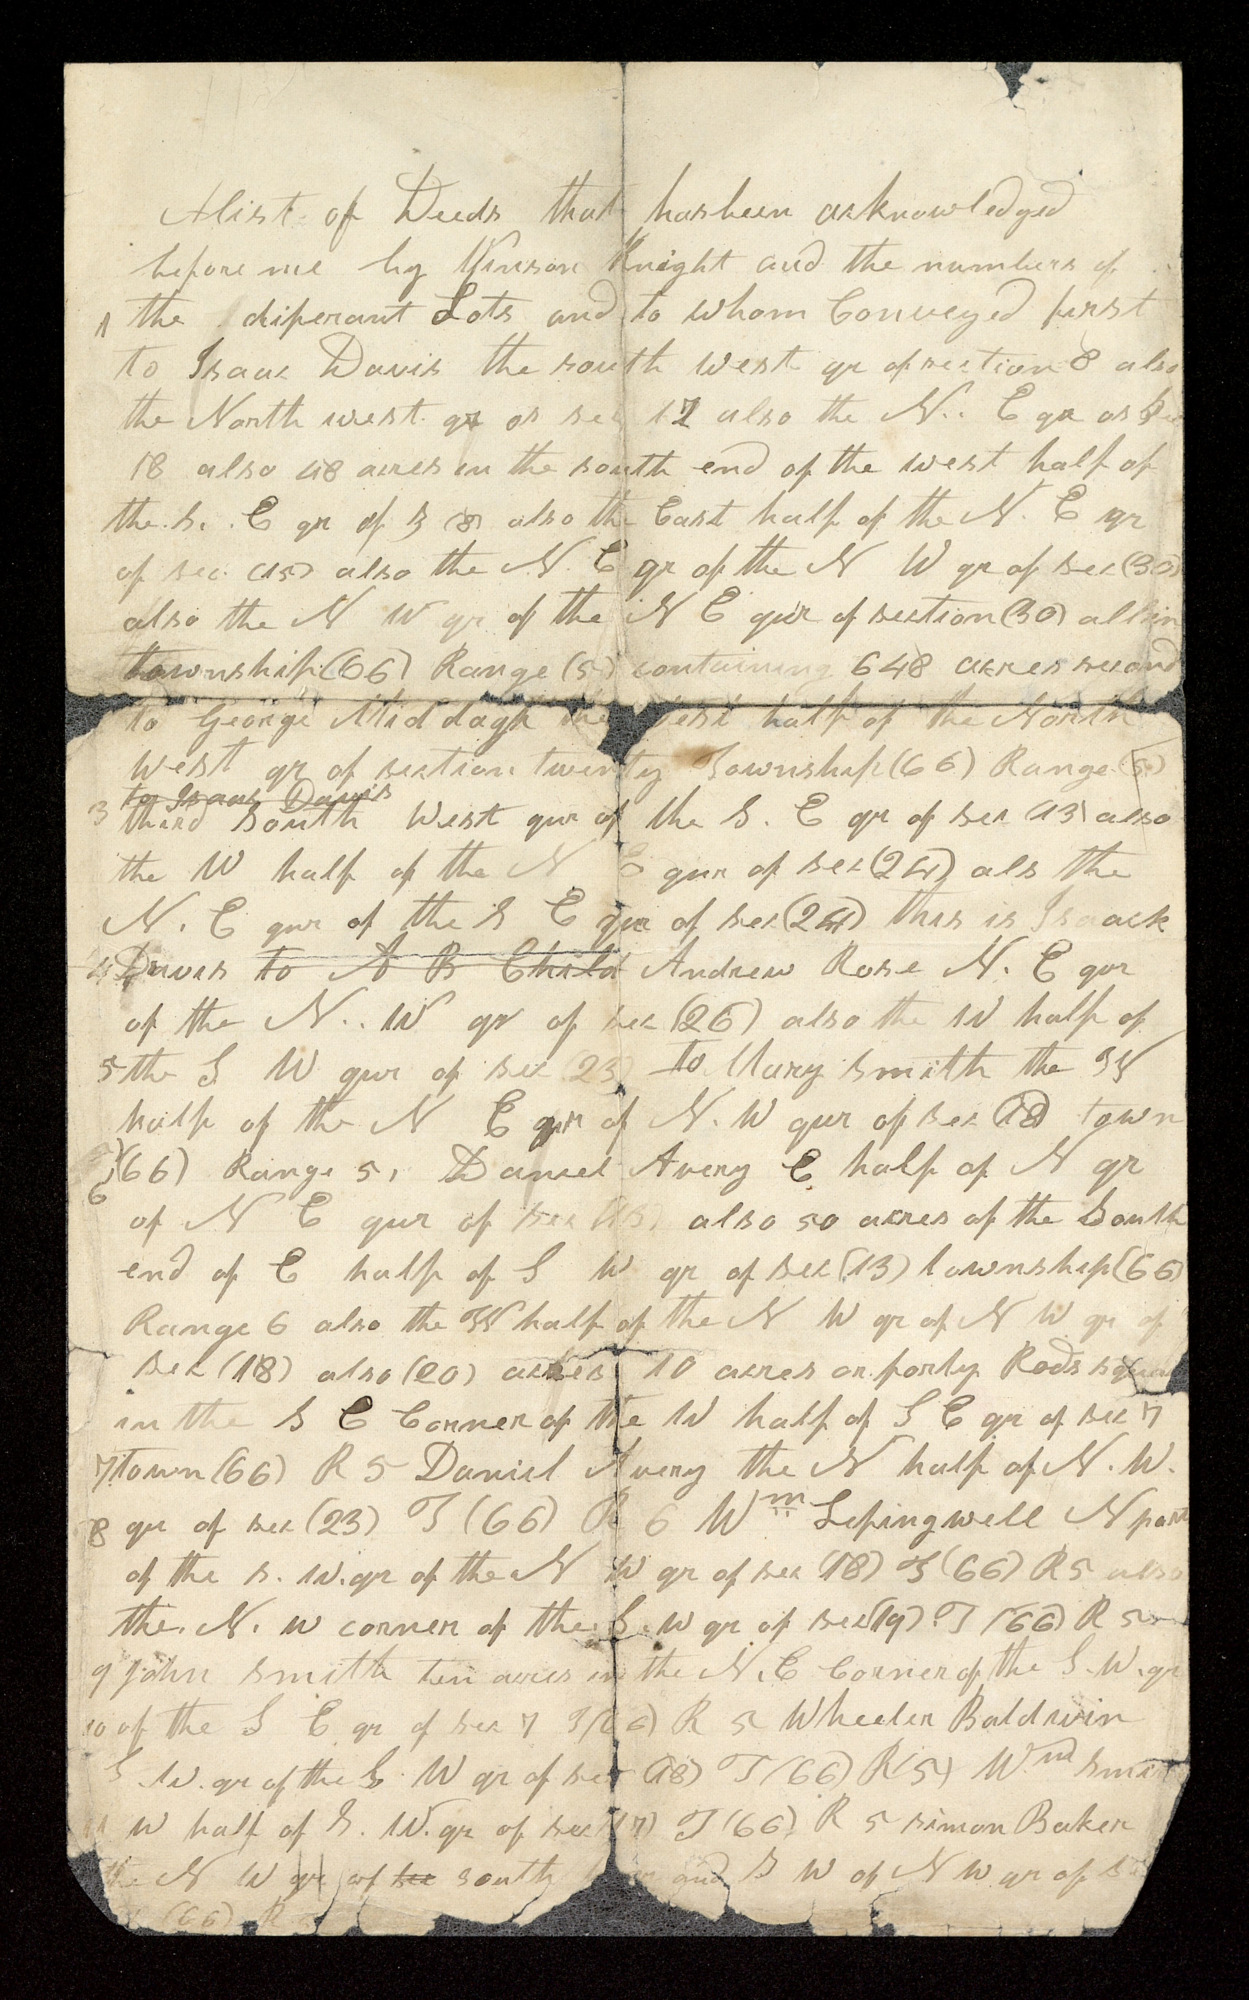 A list of Deeds that has been acknowledged
before me by Vinson Knight and the numbers of
1 the diferant Lots and to whom Conveyed first
to Isaac Davis the south west qr of section 8 also
the North west qr of sec 17 also the N. E qr of Sec
18 also 48 acres in the south end of the west half of
the S. E qr of S (8) also the East half of the N. E qr
of sec (15) also the N. E qr of the N W qr of sec (30)
also the N W qr of the N E qur of section (30) all in
township (66) Range (5) containing 648 acres second
to George Middagh the west half of the North
West qr of section twenty Township (66) Range (5)
to Isaac Davis
3 third south West qur of the S. E qr of sec (13) also
the W half of the N E qur of sec (24) als the
N. E qur of the S E qur of sec (24) this is Isaack
4 Davis to A B Child Andrew Rose N. E qur
of the N.. W qr of sec (26) also the W half of
5 the S W qur of sec (23) to Mary Smith the W
half of the N E qur of N. W qur of sec (18) town
6 (66) Range 5, Daniel Avery E half of N qr
of N E qur of sec also 50 acres of the South
end of E half of S W qr of sec (13) township (66)
Range 6 also the W half of the N W qr of N W qr of
sec (18) also (20) acres 10 acres or forty Rods square
in the S E Corner of the W half of S E qr of sec 7
7 town (66) R 5 Daniel Avery the N half of N. W.
8 qur of sec (23) T (66) R 6 Wm Lefingwell N part
of the S. W. qr of the N W qr of sec (18) T (66) R 5 also
the. N. W corner of the S. W qr of sec (19) T (66) R 5
9 John Smith ten acres in the N. E Corner of the S. W. qr
10 of the S E qr of sec 7 T (66) R 5 Wheeler Baldwin
S. W. qr of the S. W qr of sec (18) T (66) R (5) Wm Smith
11 W half of S. W. qr of sec (17) T (66) R 5 Simon Baker
the N W qr of sec south and S W of N W qr of
(66) R